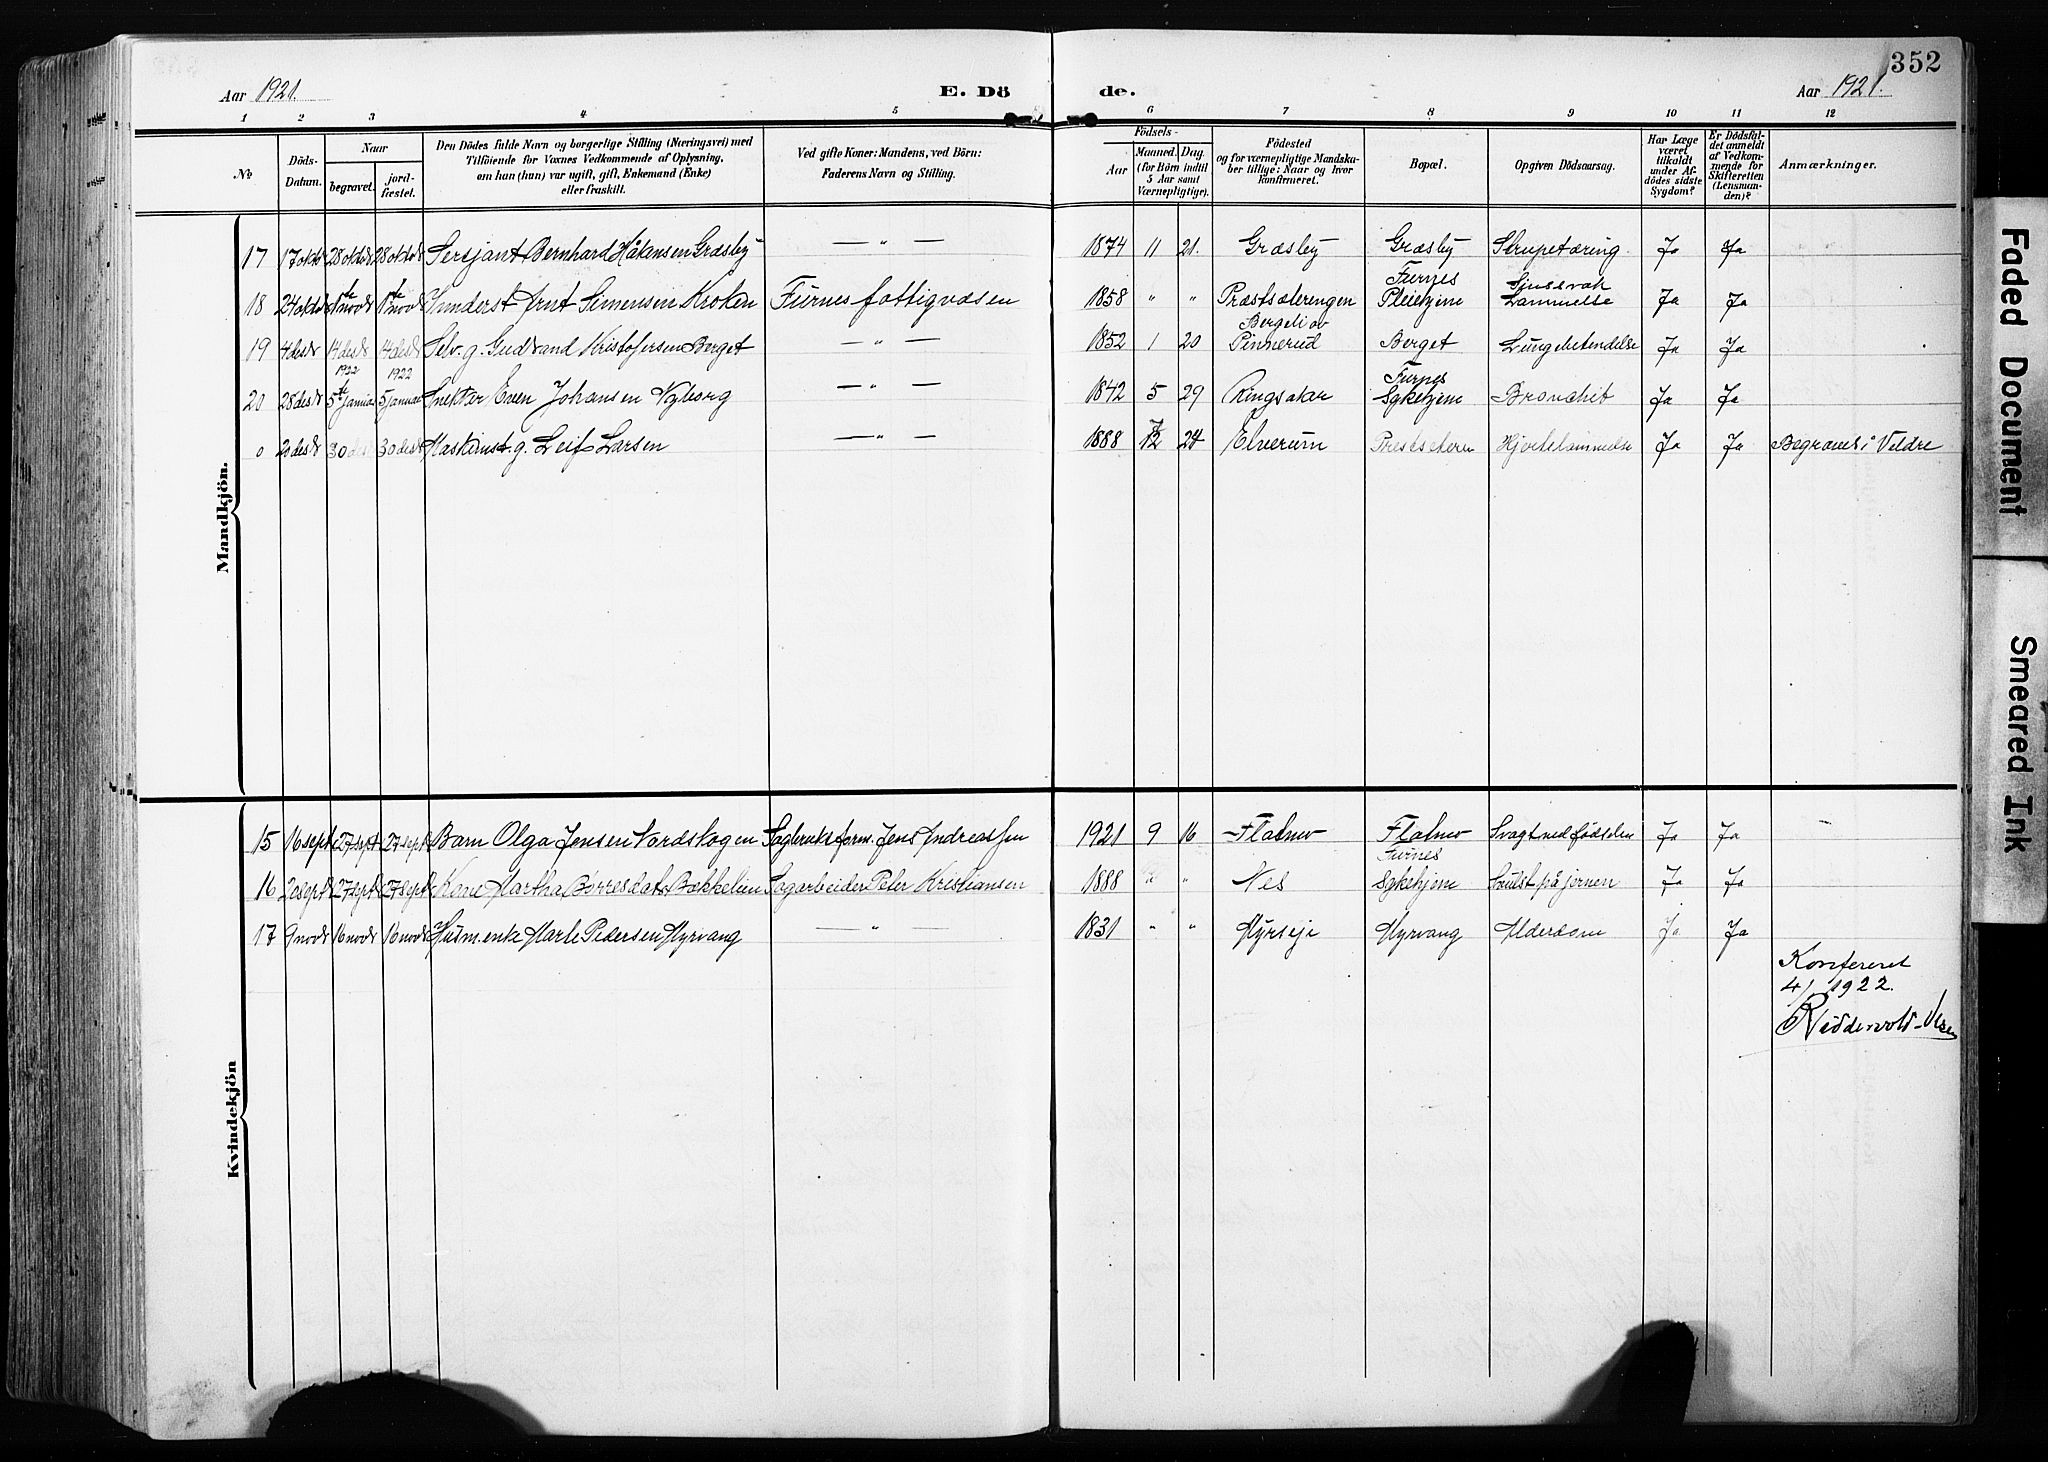 352
Aar 1921. E. Dö de. Aar 1921.
1 2 3 4 5 6 7 8 9 10 11 12
№
Döds-
Datum.
Naar
begravet.
jord-
fæstet.
Den Dödes fulde Navn og borgerlige Stilling (Næringsvei) med
Tilföiende for Voxnes Vedkommende af Oplysning,
om han (hun) var ugift, gift, Enkemand (Enke)
eller fraskilt.
Ved gifte Koner: Mandens, ved Börn:
Faderens Navn og Stilling.
Födsels-
Aar
Maaned. Dag
(for Börn indtil
5 Aar samt
Værnepligtige).
Födested
og for værnepligtige Mandska-
ber tillige: Naar og hvor
konfirmeret.
Bopæl.
Opgiven Dödsaarsag.
Har Læge
været
tilkaldt
under Af-
dödes sidste
Sygdom?
Er Dödsfal-
det anmeldt
af Vedkom-
mende for
Skifteretten
(Lensman-
den)?
Anmærkninger.
Mandkjön.
17 17 oktbr 28 oktbr 28 oktbr Sersjant Bernhard Håkensen Græsby — " — 1874 11 21. Græsby Græsby Strupetæring Ja Ja
18 24 oktbr 1ste novbr 1ste novbr Understt. Arnt Simensen Kroken Furnes fattigvæsen 1858 " " Præstsæterengen Furnes Pleiehjem Sinssvak Lammelse Ja Ja
19 4 desbr 14 desbr 14 desbr Selv.g. Gudbrand Kristofersen Berget — " — 1852 1 20 Bergeli av Pinnerud Berget Lungebetendelse Ja Ja
20 28 desbr 1922 5te januar 1922 5 januar Snekker Even Johansen Nyborg — " — 1842 5 29 Ringsaker Furnes Sykehjem Bronchit Ja Ja
0 20 desbr 30 desbr 30 desbr Maskinst. g. Leif Larsen — " — 1888 12 24 Elverum Prestseteren Hjertelammelse Ja Ja Begravet i Veldre
Kvindekjön
15 16 sept 27 sept 27 sept Barn Olga Jensen Nordskogen Sagbruksform. Jens Andreassen 1921 9 16 Flatmo Flatmo Svagt ved fødselen Ja Ja —
16 20 sept 27 sept 27 sept Kone Martha Børresdatr Bækkelien Sagarbeider Peter Kristiansen 1888 " " Nes Furnes Sykehjem Svulst på jernen Ja Ja
17 9 novbr 16 novbr 16 novbr Husm.enke Marte Pedersen Myrvang — " — 1831 " " Myrseje Myrvang Alderdom Ja Ja
Konfereret
4/1 1922.
Riddervold-Olsen
Faded Document
Smeared Ink